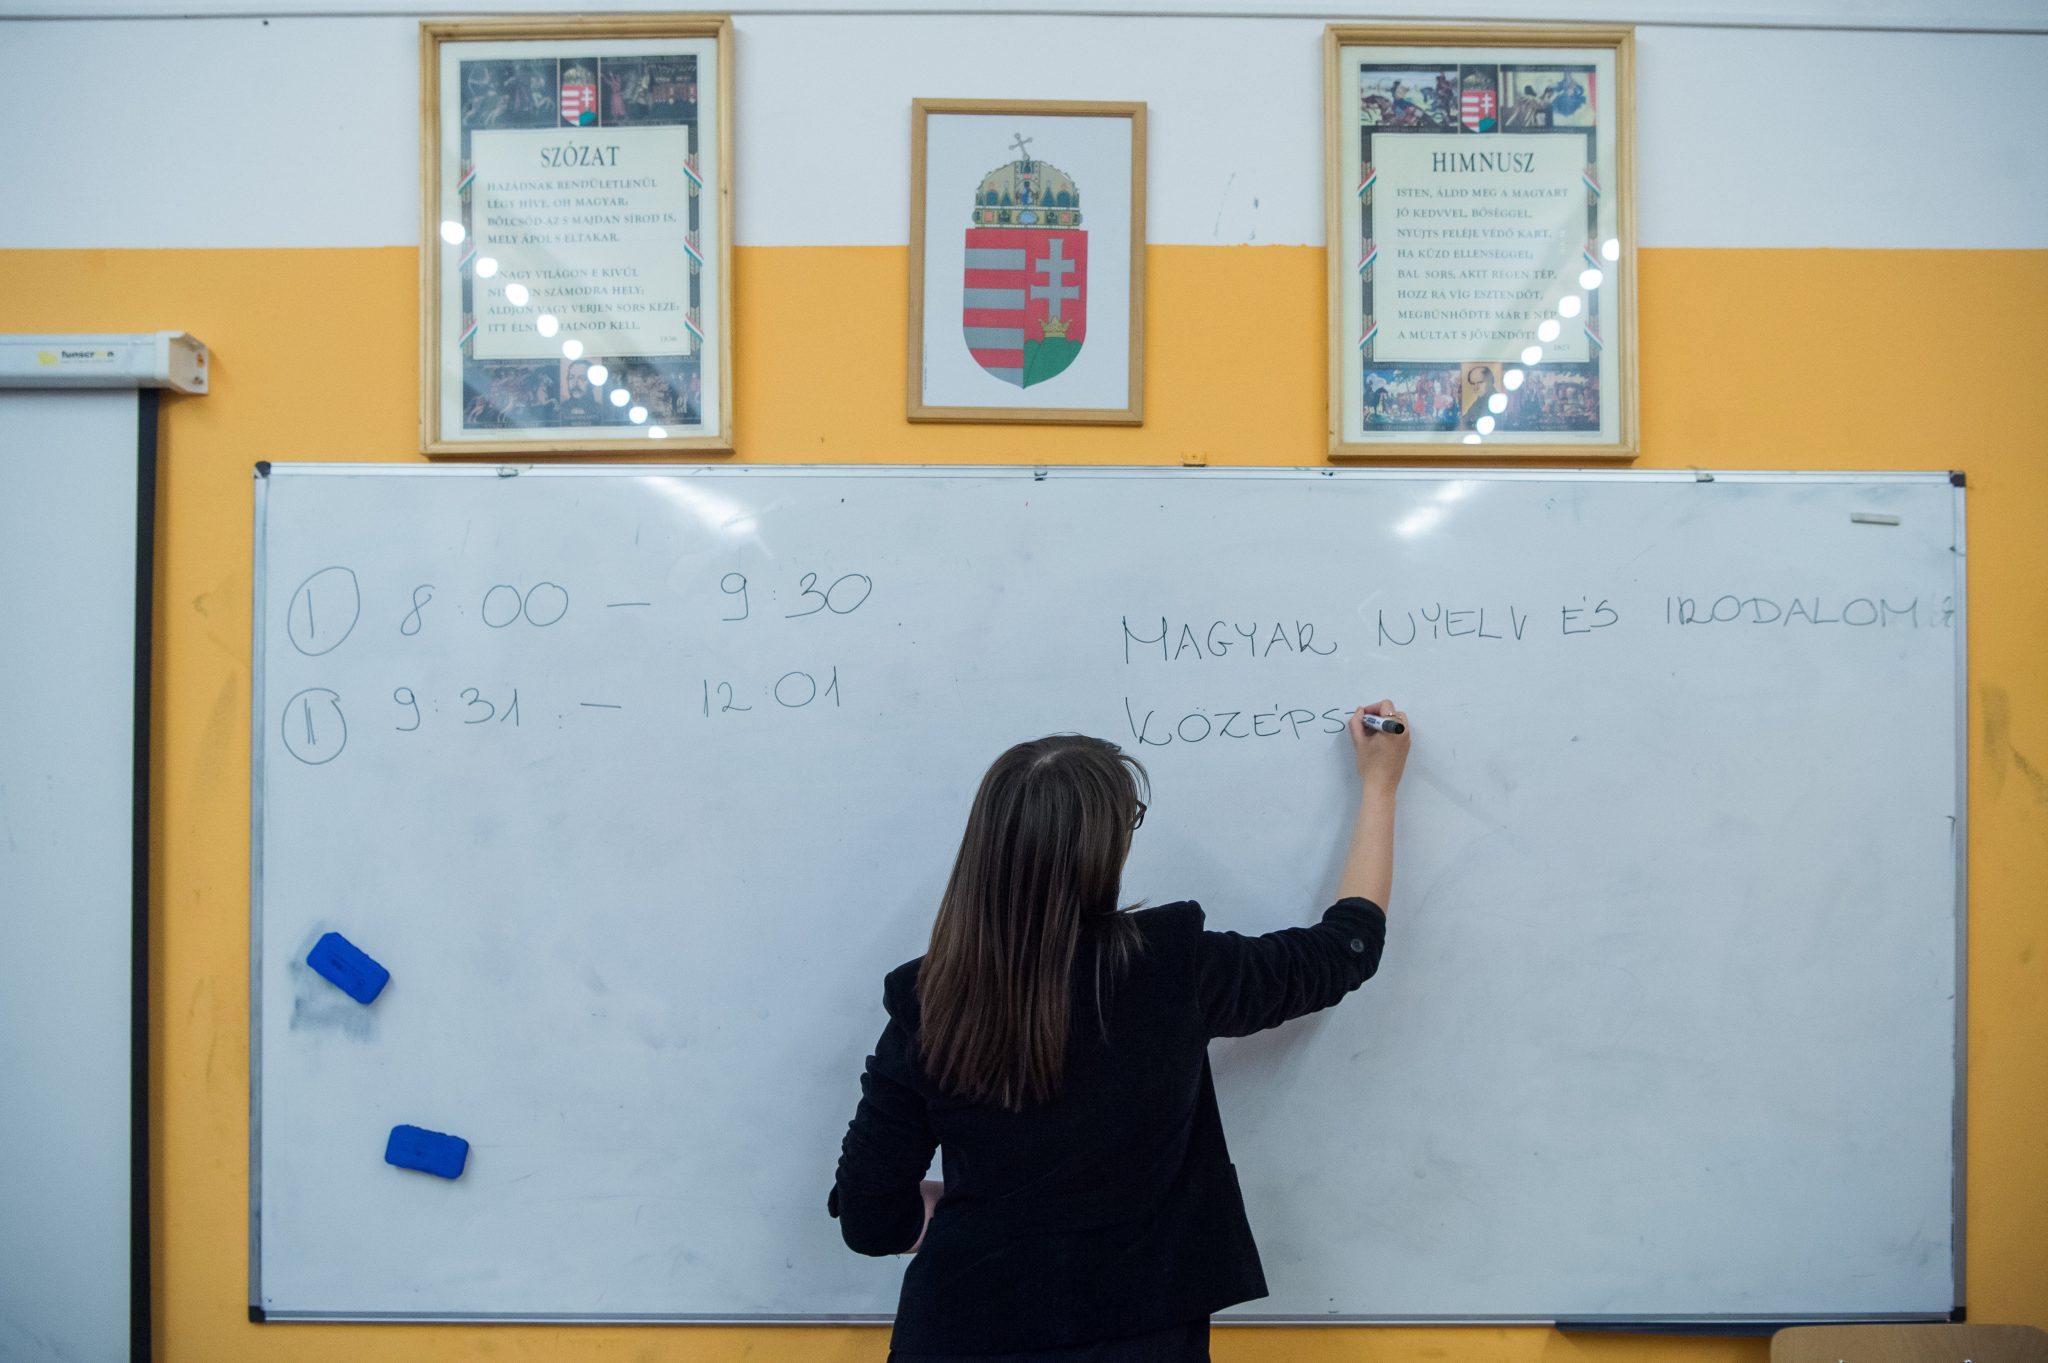 SZÓZAT
HAZÁDNAK RENDÜLETLENÜL
LÉGY HÍVE, OH MAGYAR;
BÖLCSŐD AZ S MAJDAN SÍROD IS,
MELY ÁPOL S ELTAKAR.
NAGY VILÁGON E KÍVÜL
SZÁMODRA HELY;
ÁLDJON VAGY VERJEN SORS KEZE;
ITT ÉLNED, HALNOD KELL.
1836
HIMNUSZ
ISTEN, ÁLDD MEG A MAGYART
JÓ KEDVVEL, BŐSÉGGEL,
NYÚJTS FELÉJE VÉDŐ KART,
HA KÜZD ELLENSÉGGEL;
BAL SORS, AKIT RÉGEN TÉP,
HOZZ RÁ VÍG ESZTENDŐT,
MEGBŰNHŐDTE MÁR E NÉP
A MÚLTAT S JÖVENDŐT!
1823
funscreen
I. 8:00 – 9:30
II 9:31 – 12:01
MAGYAR NYELV ÉS IRODALOM
KÖZÉPSZ